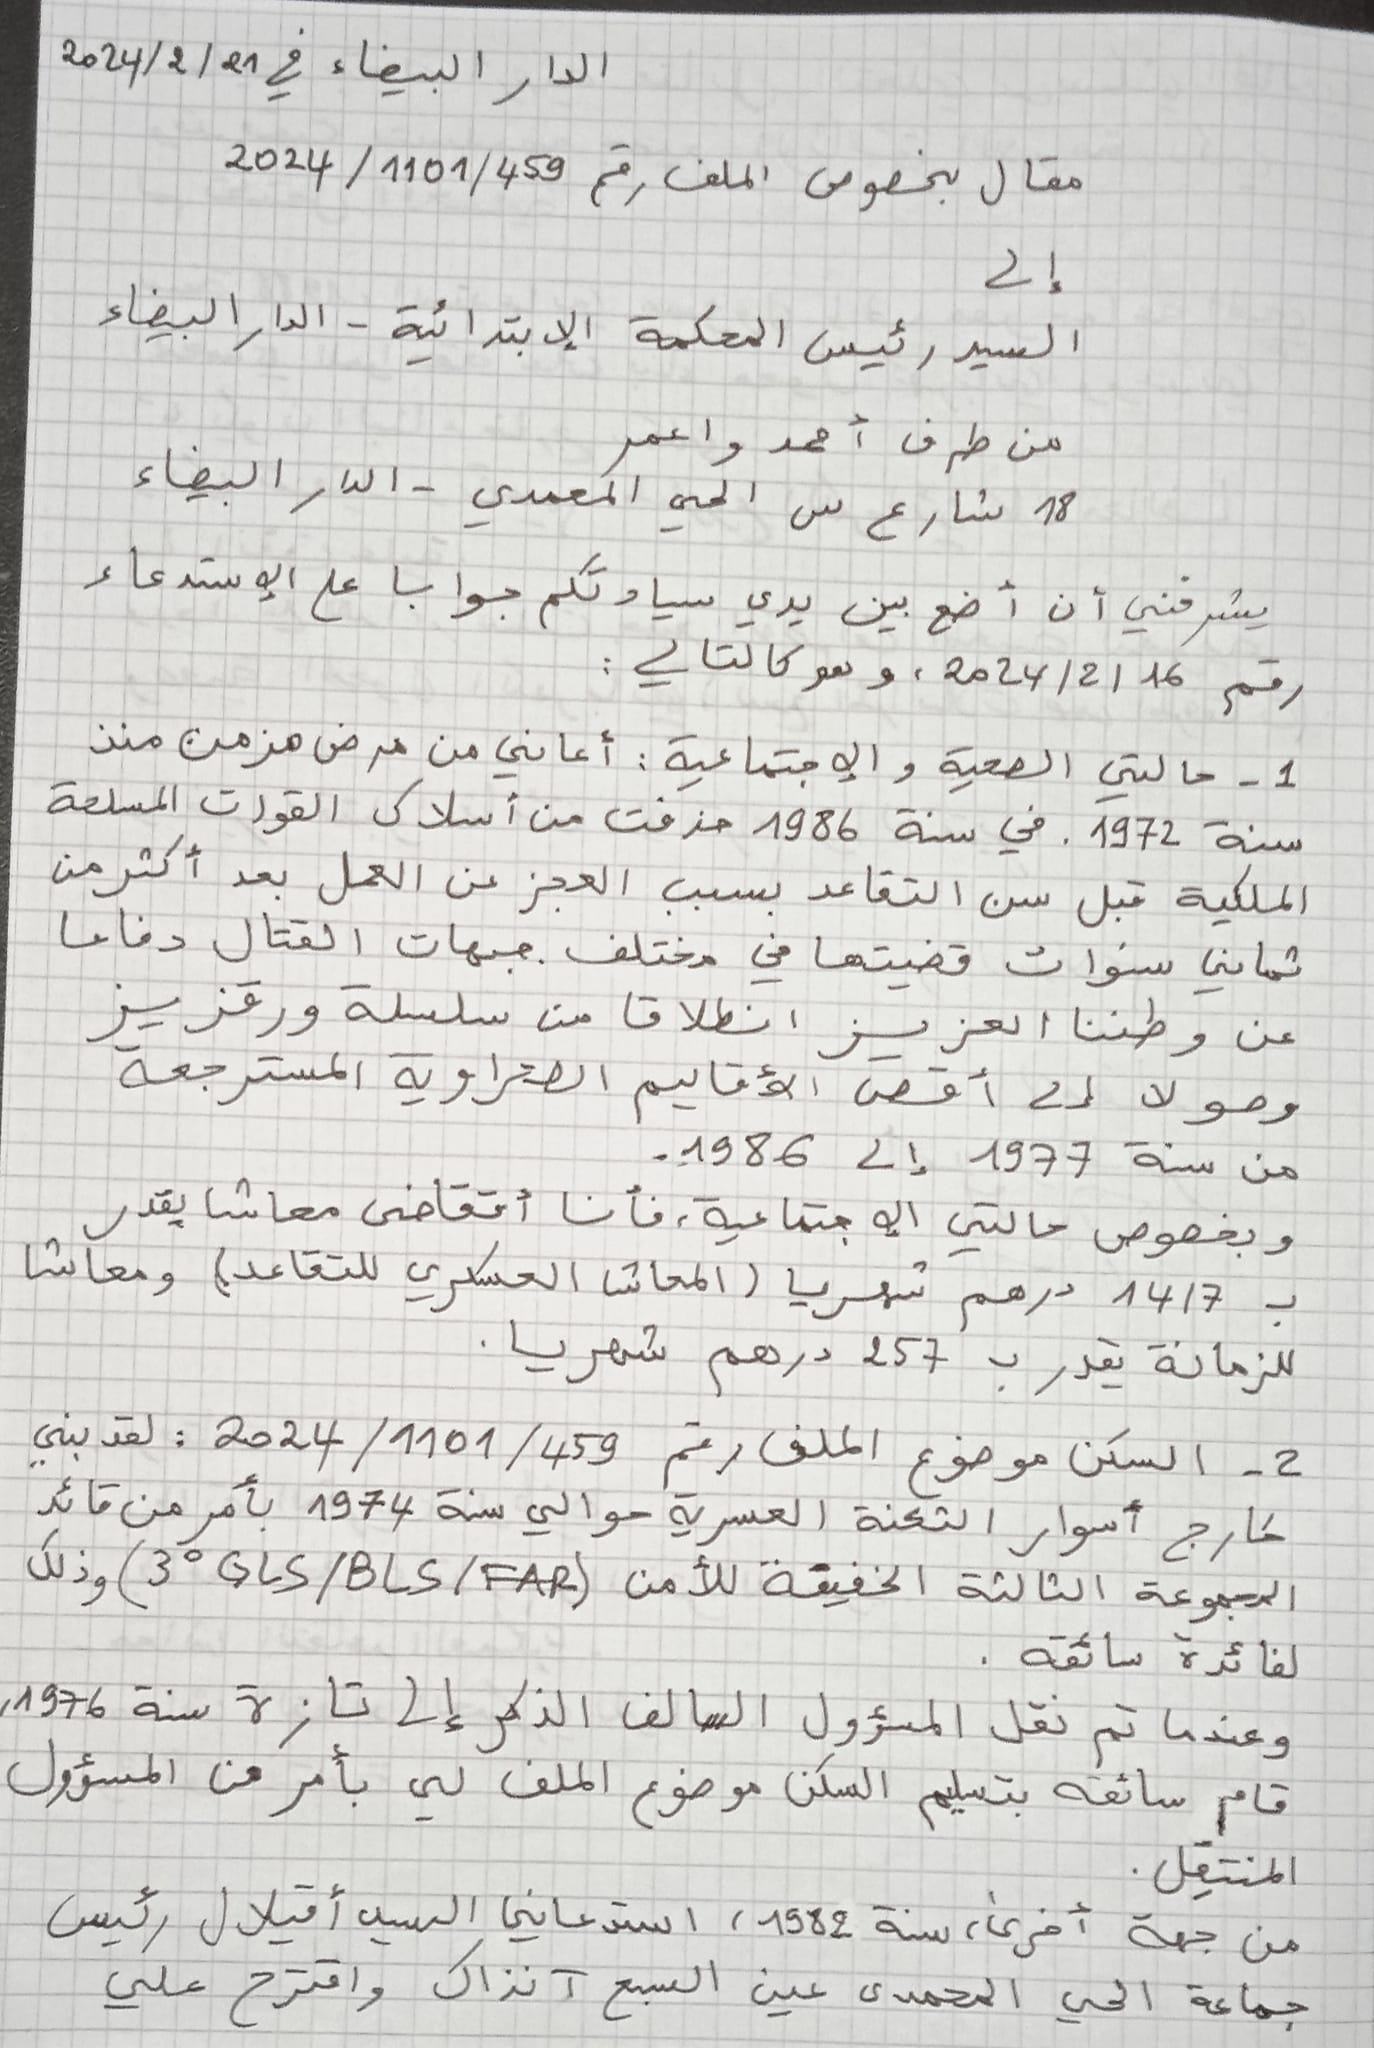 الدار البيضاء في 2024/2/21
مقال بخصوص الملف رقم 2024/1101/459
إلى
السيد رئيس المحكمة الإبتدائية - الدار البيضاء
من طرف أحمد واعمر
18 شارع س الحي المحمدي - الدار البيضاء
يشرفني أن أضع بين يدي سيادتكم جوابا على الإستدعاء
رقم 16/2/2024، وهو كالتالي :
1 - حالتي الصحية والإجتماعية : أعاني من مرض مزمن منذ
سنة 1972. في سنة 1986 حذفت من أسلاك القوات المسلحة
الملكية قبل سن التقاعد بسبب العجز عن العمل بعد أكثر من
ثماني سنوات قضيتها في مختلف جبهات القتال دفاعا
عن وطننا العزيز انطلاقا من سلسلة ورقزيز
وصولا إلى أقصى الأقاليم الصحراوية المسترجعة
من سنة 1977 إلى 1986.-
وبخصوص حالتي الإجتماعية، فأنا أتقاضى معاشا يقدر
ب 1417 درهم شهريا (المعاش العسكري للتقاعد) ومعاشا
للزمانة يقدر ب 257 درهم شهريا.
2 - السكن موضوع الملف رقم 2024/1101/459 : لقد بني
خارج أسوار الثكنة العسرية حوالي سنة 1974 بأمر من قائد
المجموعة الثالثة الخفيفة للأمن (3° GLS/BLS/FAR) وذلك
لفائدة سائقه .
وعندما تم نقل المسؤول السالف الذكر إلى تازة سنة 1976،
قام سائقه بتسليم السكن موضوع الملف لي بأمر من المسؤول
المنتقل.
من جهة أخرى، سنة 1982، استدعاني السيد أقيلال رئيس
جماعة الحي المحمدي عين السبع آنذاك واقترح علي